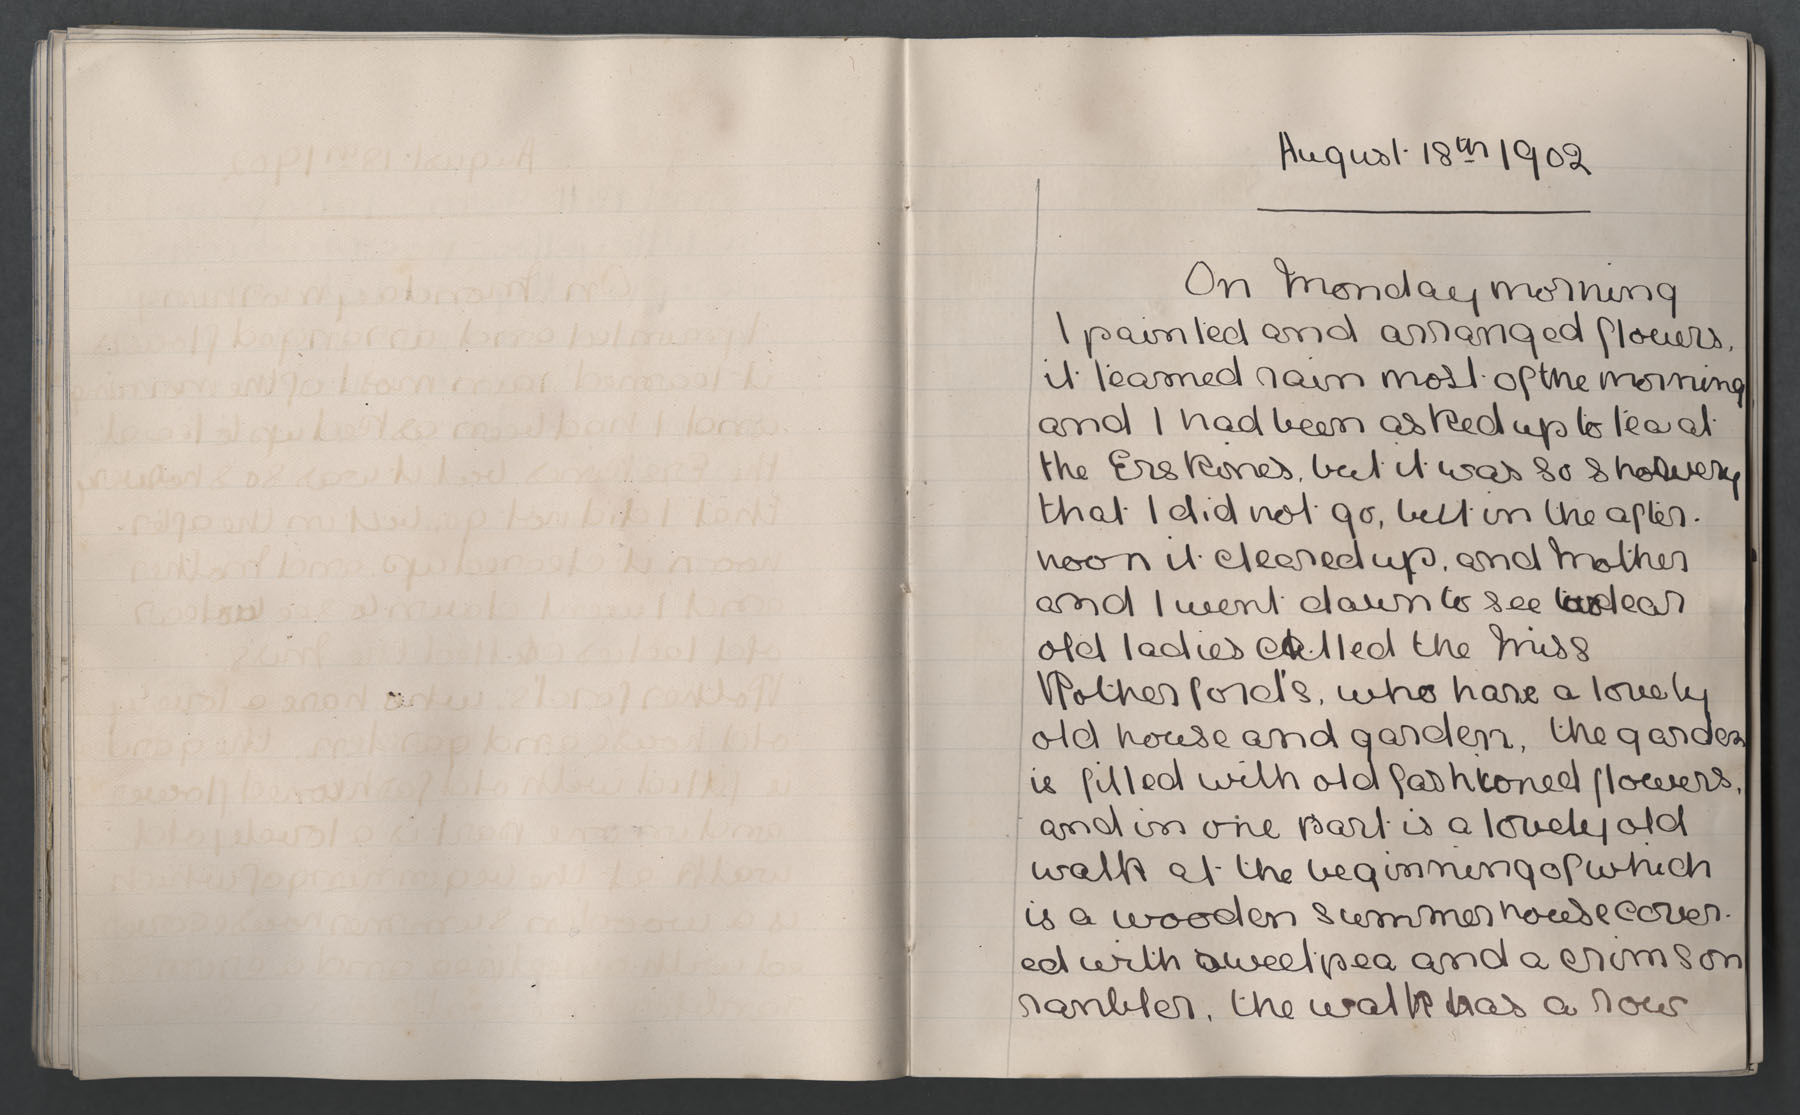 August 18th 1902
On Monday morning
I painted and arranged flowers,
it teamed rain most of the morning
and I had been asked up to tea at
the Erskines, but it was so showery
that I did not go, but in the after-
noon it cleared up, and Mother
and I went down to see two dear
old ladies called the Miss
Rotherford's, who have a lovely
old house and garden, the garden
is filled with old fashioned flowers,
and in one part is a lovely old
walk at the beginning of which
is a wooden summer house cover-
ed with sweet pea and a crimson
rambler, the walk has a row